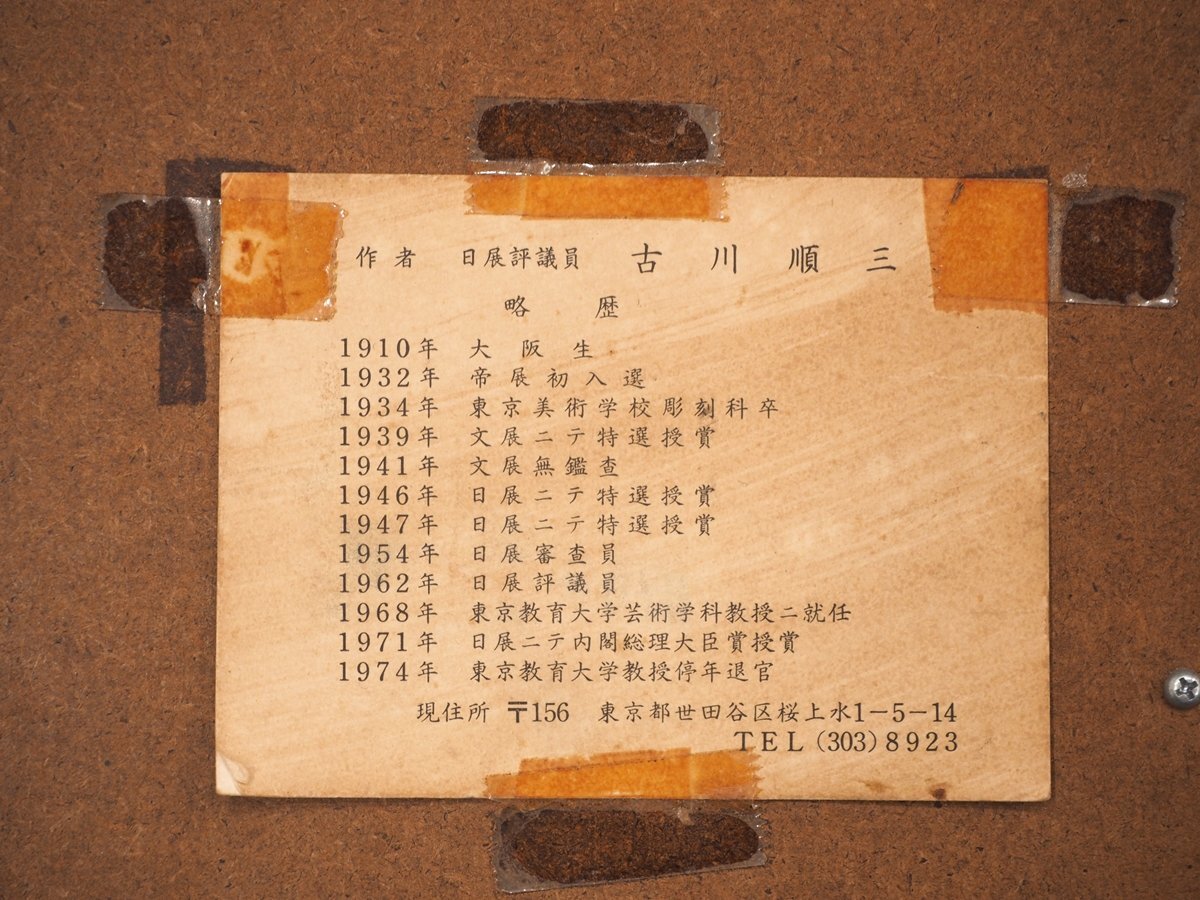 作者 日展評議員 古川順三
略歴
1910年 大阪生
1932年 帝展初入選
1934年 東京美術学校彫刻科卒
1939年 文展ニテ特選授賞
1941年 文展無鑑査
1946年 日展ニテ特選授賞
1947年 日展ニテ特選授賞
1954年 日展審査員
1962年 日展評議員
1968年 東京教育大学芸術学科教授ニ就任
1971年 日展ニテ内閣総理大臣賞授賞
1974年 東京教育大学教授停年退官
現住所 〒156 東京都世田谷区桜上水1-5-14
TEL (303) 8923